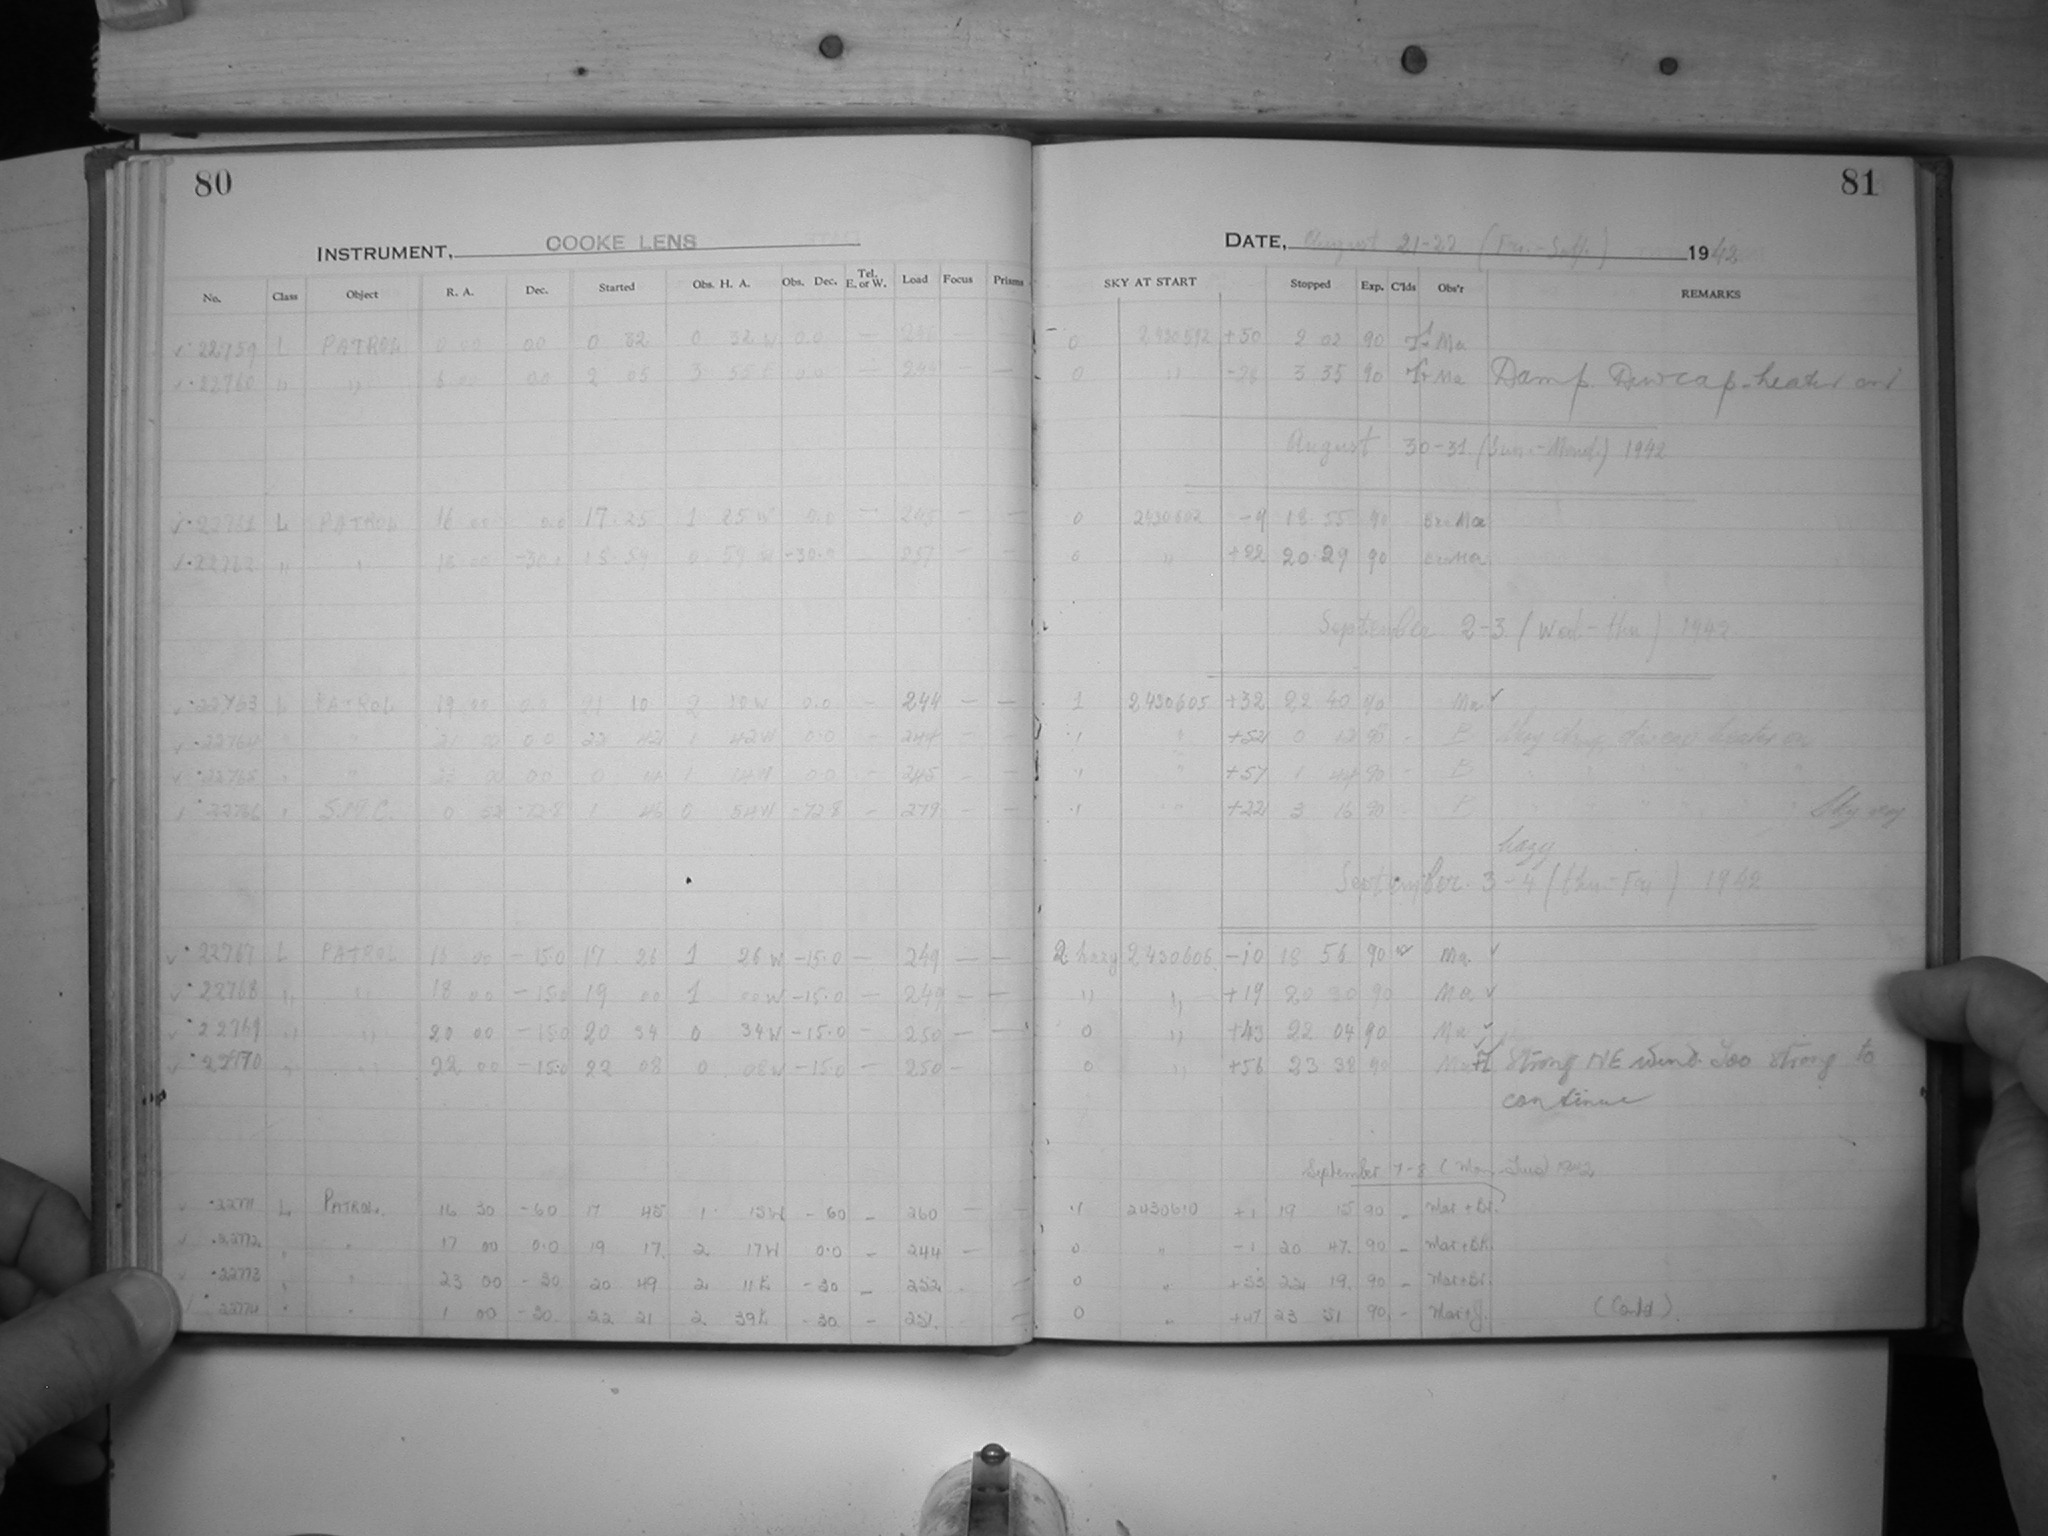 80
INSTRUMENT, COOKE LENS
No. Class Object R. A. Dec. Started Obs. H. A. Obs. Dec. Tel. E. or W. Load Focus Prisms
22759 L PATROL 0 00 0.0 0 32 0 32 W 0.0 —
22760 " " 6 00 0.0 2 05 3 55 E 0.0 —
22761 L PATROL 16 00 0.0 17 25 1 25 W 0.0 — — —
22762 " " 18 00 -30.0 18 59 0 59 W -30.0 — 257 — —
22763 L PATROL 19 00 0.0 21 10 2 10 W 0.0 — 244 — —
22764 " " 21 00 0.0 22 42 1 42 W 0.0 — 244 — —
22765 " " 23 00 0.0 0 14 1 14 W 0.0 — 245 — —
22766 " S.M.C. 0 52 -72.8 1 46 0 54 W -72.8 — 279 — —
22767 L PATROL 16 00 -15.0 17 26 1 26 W -15.0 — 249 — —
22768 " " 18 00 -15.0 19 00 1 00 W -15.0 — 249 — —
22769 " " 20 00 -15.0 20 34 0 34 W -15.0 — 250 — —
22770 " " 22 00 -15.0 22 08 0 08 W -15.0 — 250 —
22771 L PATROL. 16 30 -60 17 45 1 15 W -60 — 260 — —
22772 " " 17 00 0.0 19 17 2 17 W 0.0 — 244 —
22773 " " 23 00 -30 20 49 2 11 E -30 — 252 —
22774 " " 1 00 -30 22 21 2 39 E -30 — 251 —
81
DATE, August 21-22 (Fri.-Sat.) 1942
SKY AT START Stopped Exp. C'lds Obs'r REMARKS
0 2430592 +50 2 02 90 Ma
0 " 3 35 90 Ma Damp. Dewcap-heater on
August 30-31 (Sun.-Mond.) 1942
0 2430602 -9 18 55 90 Br. Ma
0 " +22 20 29 90
September 2-3 (Wed-Thu) 1942
1 2430605 +32 22 40 90 Ma
1 " +52 0 12 90 - B heater on
1 " +57 1 44 90 - B " " "
1 " +22 3 16 90 - B " " " Sky very
hazy
September 3-4 (Thu-Fri) 1942
2 hazy 2430606 -10 18 56 90 Ma
" " +19 20 30 90 Ma
0 " +43 22 04 90 Ma
0 " +56 23 38 90 Strong NE wind. Too strong to
continue
September 7-8 (Mon-Tues) 1942
1 2430610 +1 19 15 90 - Mar + Br.
0 " -1 20 47 90 - Mar + Br.
0 " +35 22 19 90 - Mar + Br.
0 " +47 23 51 90 - Mar + J. (Contd).